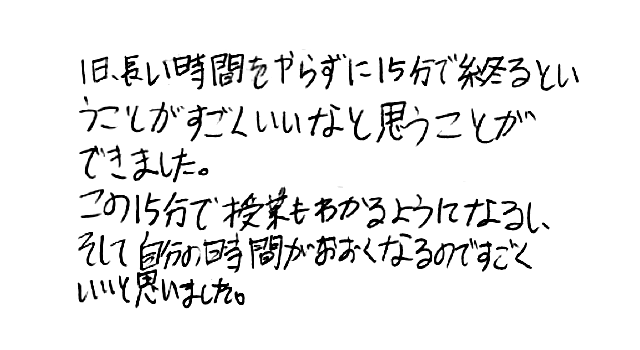 1日、長い時間をやらずに15分で終るとい
うことがすごくいいなと思うことが
できました。
この15分で授業もわかるようになるし、
そして自分の時間がおおくなるのですごく
いいと思いました。